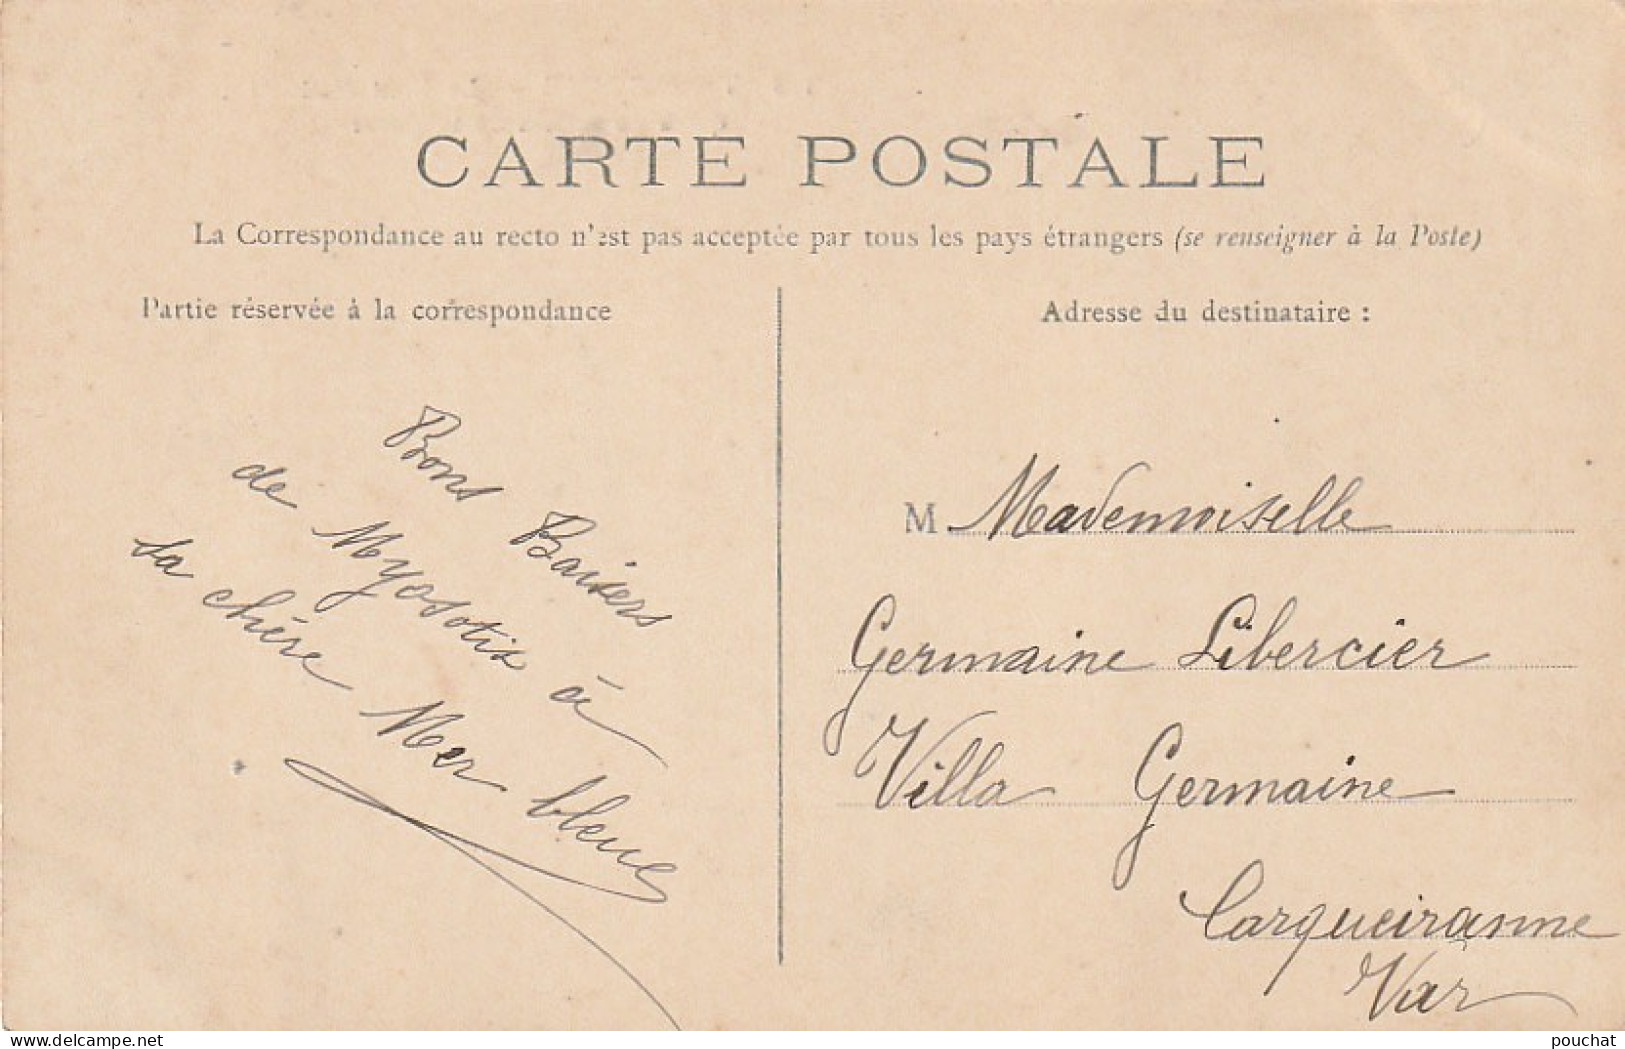 CARTE POSTALE
La Correspondance au recto n'est pas acceptée par tous les pays étrangers (se renseigner à la Poste)
Partie réservée à la correspondance
Bons Baisers
de Myosotis à
sa chère Mer bleue
Adresse du destinataire :
M Mademoiselle
Germaine Libercier
Villa Germaine
Carqueiranne
Var
www.delcampe.net
pouchat